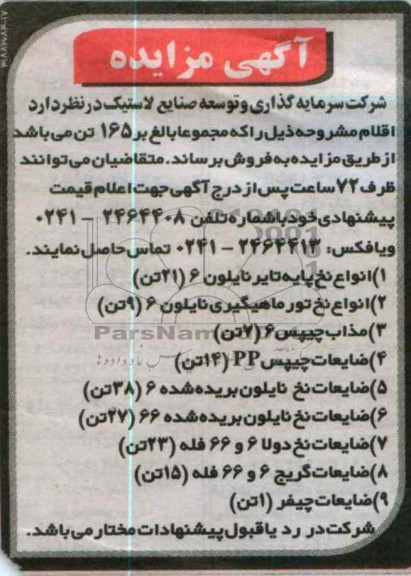 آگهی مزایده
شرکت سرمایه گذاری و توسعه صنایع لاستیک در نظر دارد
اقلام مشروحه ذیل را که مجموعا بالغ بر ۱۶۵ تن می باشد
از طریق مزایده به فروش برساند. متقاضیان می توانند
ظرف ۷۲ ساعت پس از درج آگهی جهت اعلام قیمت
پیشنهادی خود با شماره تلفن ۲۴۶۴۴۰۸ - ۰۲۴۱
و یا فکس: ۲۴۶۴۴۱۳ - ۰۲۴۱ تماس حاصل نمایند.
۱)انواع نخ پایه تایر نایلون ۶ (۲۱تن)
۲)انواع نخ تور ماهیگیری نایلون ۶ (۹تن)
۳)مذاب چیپس ۶ (۷تن)
۴)ضایعات چیپس PP (۱۴تن)
۵)ضایعات نخ نایلون بریده شده ۶ (۳۸تن)
۶)ضایعات نخ نایلون بریده شده ۶۶ (۲۷تن)
۷)ضایعات نخ دولا ۶ و ۶۶ فله (۲۳تن)
۸)ضایعات گریج ۶ و ۶۶ فله (۱۵تن)
۹)ضایعات چیفر (۱تن)
شرکت در رد یا قبول پیشنهادات مختار می باشد.